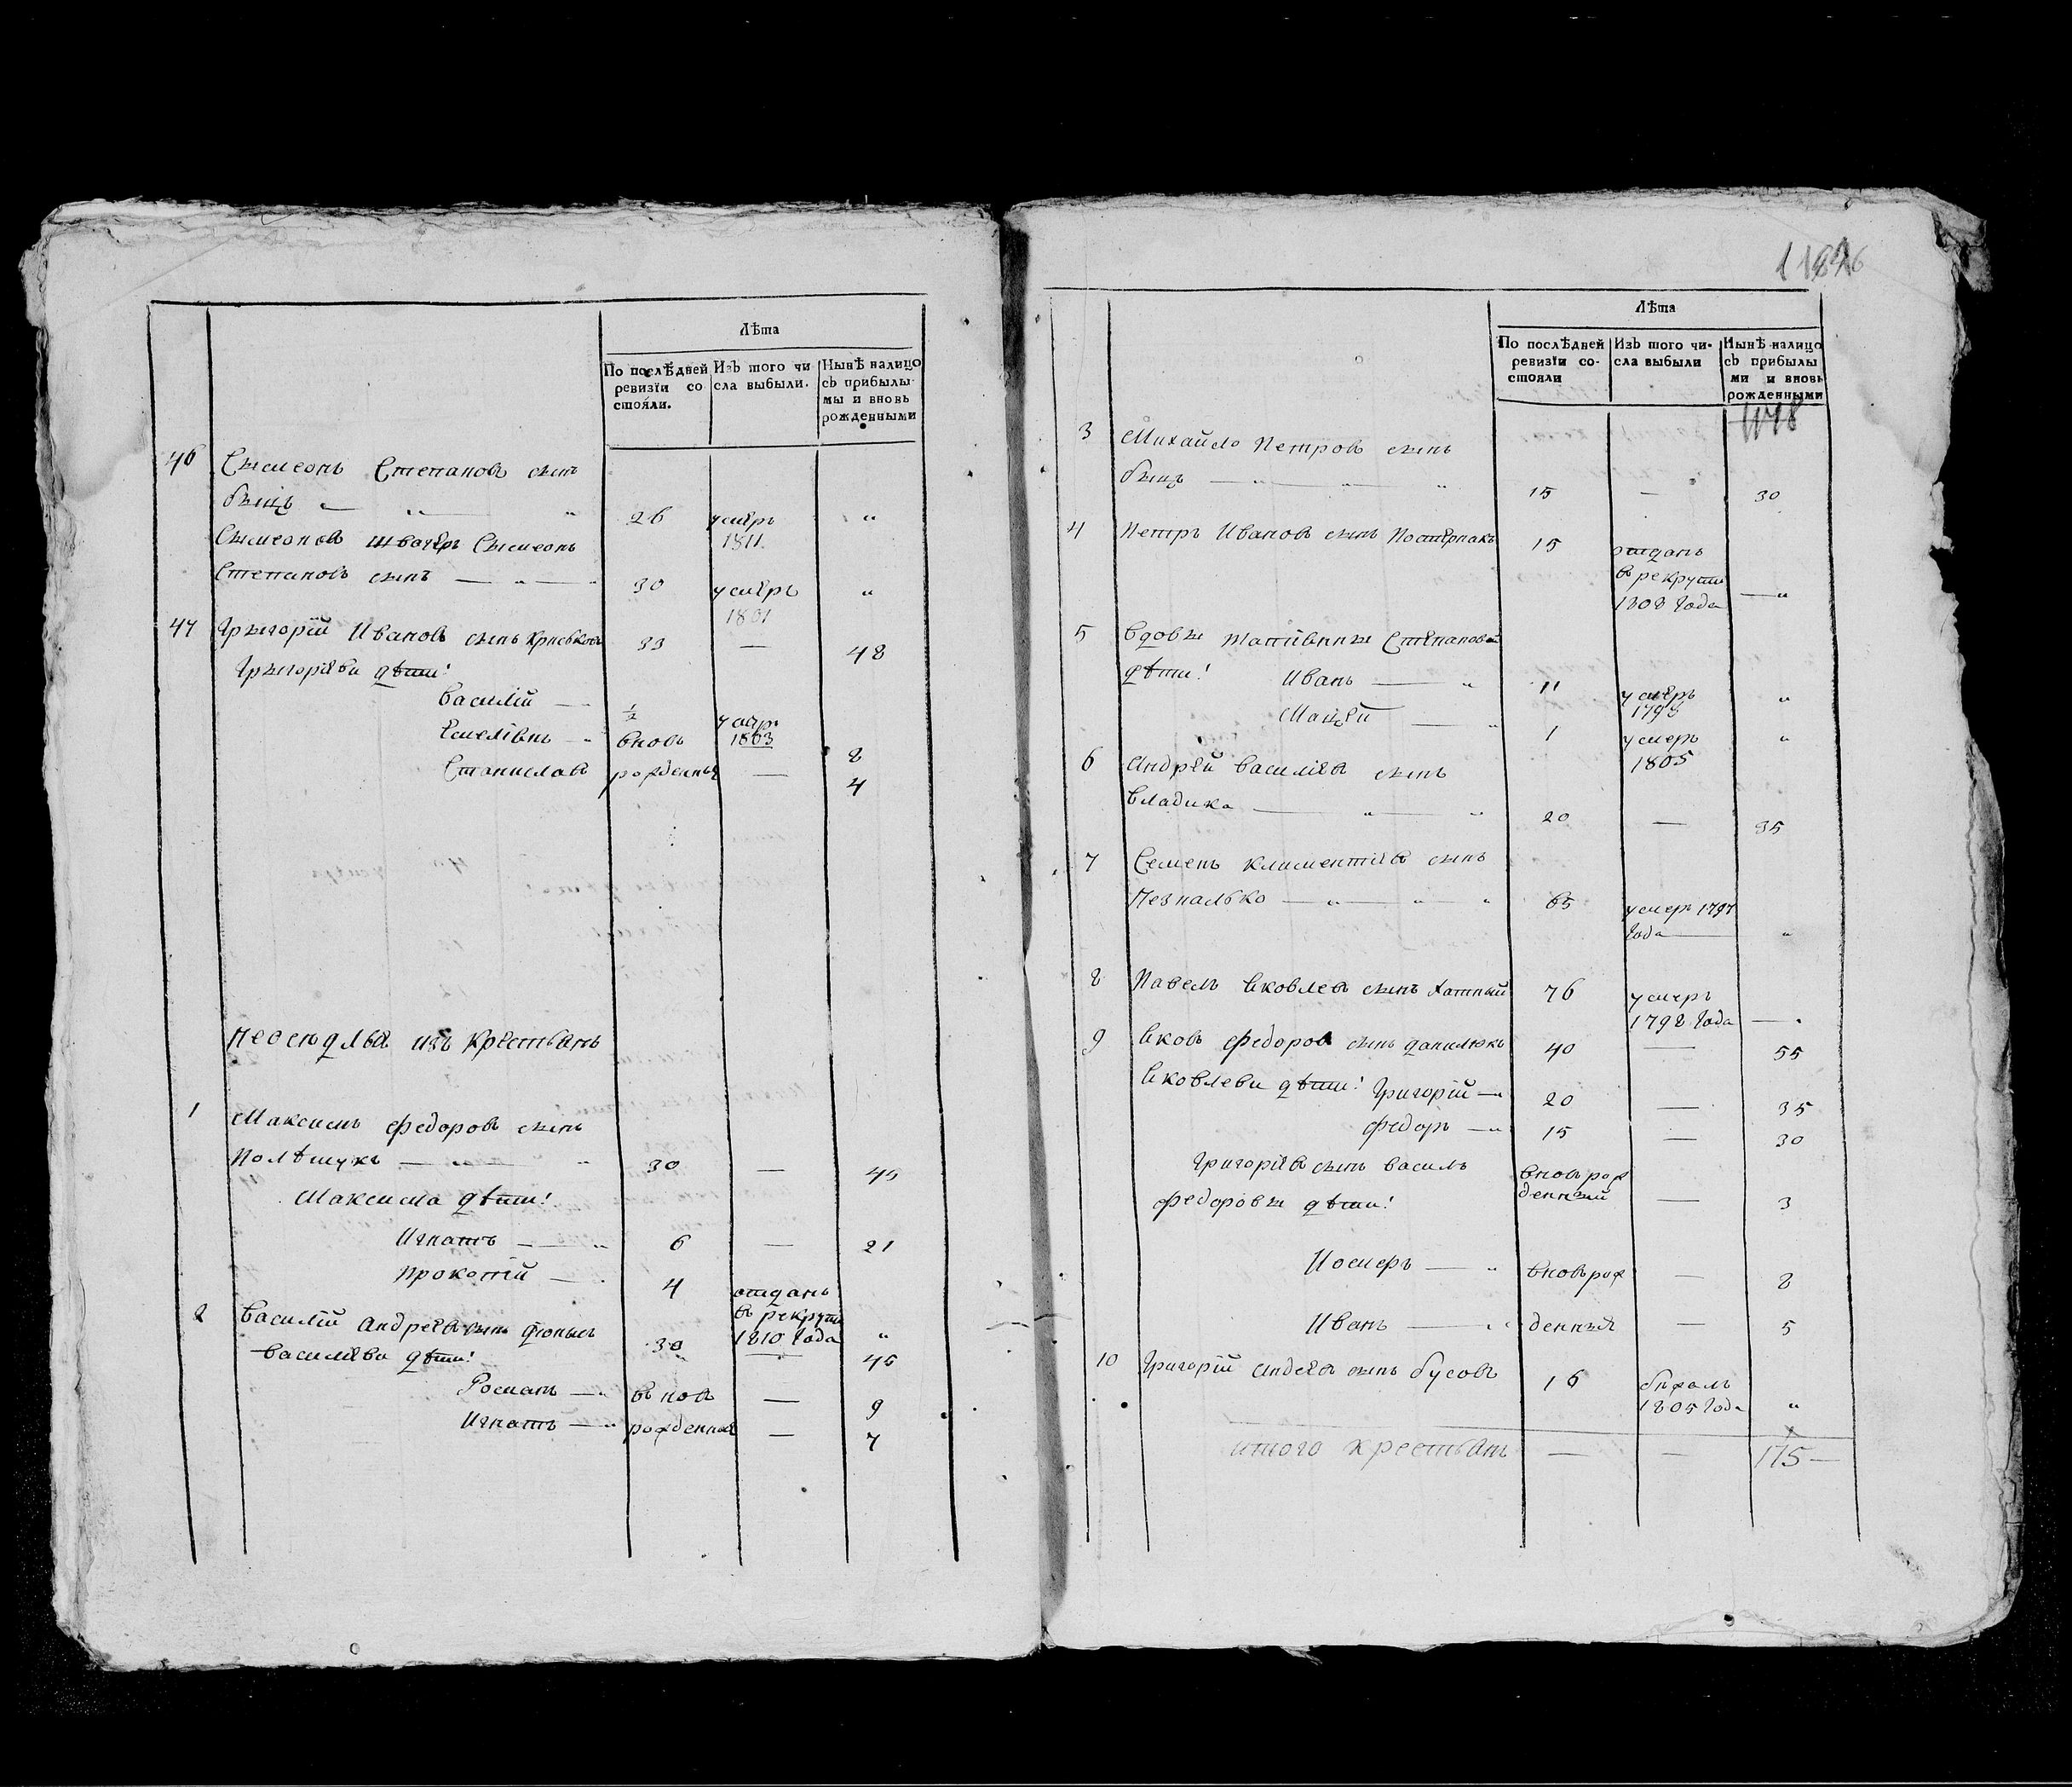 Лѣта
По послѣдней ревизіи состояли.
Изъ того числа выбыли.
Нынѣ налицо съ прибылымы и вновь рожденными
46 Сымеонъ Степановъ сынъ
быцъ — „ „ 26 умеръ 1811 „
Сымеоновъ швагеръ Сымеонъ
Степановъ сынъ — „ — 30 умеръ 1801 „
47 Грыгорій Ивановъ сынъ 33 — 48
Грыгоріеви дѣти!
Василій — 1/2 умер. 1803
Емеліянъ — „ вновь 8
Станиславъ рожденныя — 4
неоседлыя изъ крестьянъ
1 Максимъ Федоровъ сынъ
Полѣщукъ — „ 30 — 45
Максима дѣти!
Игнатъ — „ 6 — 21
Прокопій — 4 отданъ въ рекруты 1810 года „
2 Василій Андреевъ сынъ 30 — 45
Василіеви дѣти!
Романъ — „ вновь — 9
Игнатъ — „ рожденныя — 7
1186
Лѣта
По послѣдней ревизіи состояли
Изъ того числа выбыли
Нынѣ налицо съ прибылыми и вновь рожденными
3 Михайло Петровъ сынъ
быцъ — „ — „ — „ 15 — 30
4 Петръ Ивановъ сынъ Постернакъ 15 отданъ въ рекруты 1808 года — „
5 Вдовы Татіянны Степановой
дѣти! Иванъ — „ 11 умеръ 1798 „
Мацей — „ 1 умеръ 1805 „
6 Андрей Василіевъ сынъ
Владика — „ — „ 20 — 35
7 Семенъ Климентіевъ сынъ
Незналько — „ — „ — „ 65 умеръ 1797 года — „
8 Павелъ Яковлевъ сынъ Хатный 76 умеръ 1798 года — „
9 Яковъ Федоровъ сынъ Данилюкъ 40 — 55
Яковлеви дѣти! Григорій — „ 20 — 35
Федоръ — „ 15 — 30
Григоріевъ сынъ Василь вновь рожденный — 3
Федоровы дѣти!
Иосиеръ — „ вновь рож — 8
Иванъ — „ денныя — 5
10 Григорій Андеевъ сынъ Бусовъ 16 бѣжалъ 1805 года „
итого крестьянъ — — 175 —